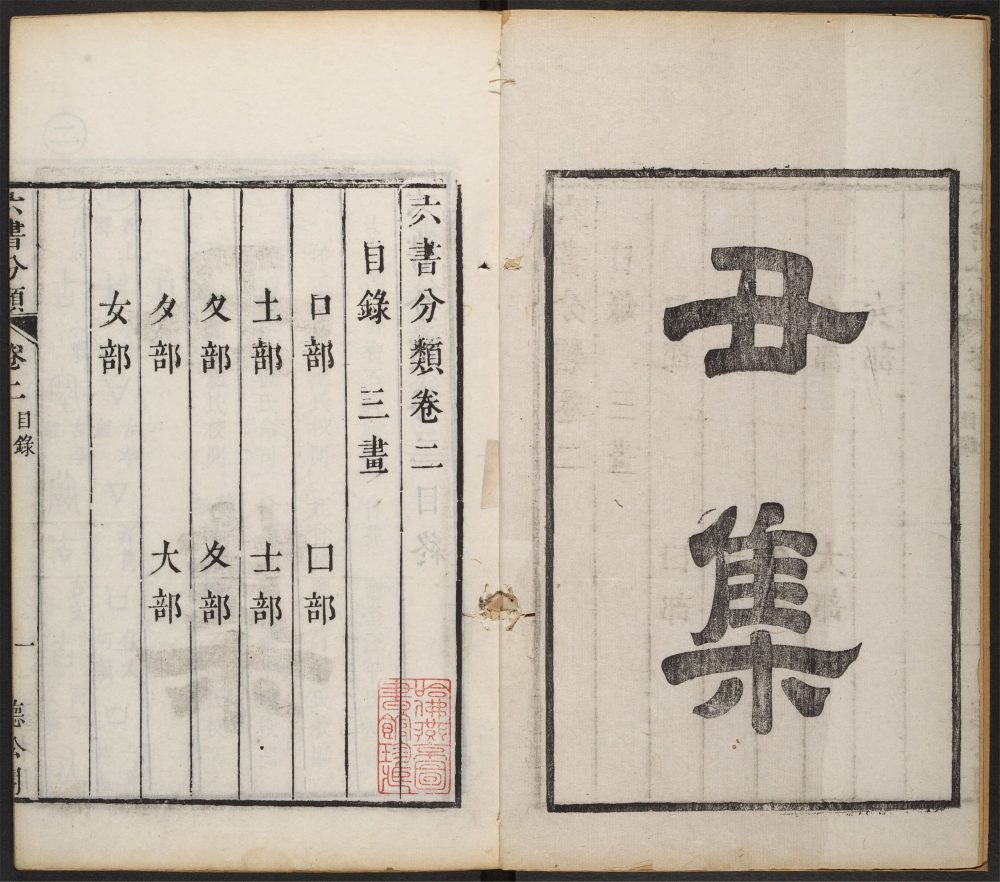 丑集
六書分類卷二
目錄 三畫
口部 囗部
土部 士部
夂部 夊部
夕部 大部
女部
六書分類 卷二 目錄 一
哈佛燕京圖
書館珍藏